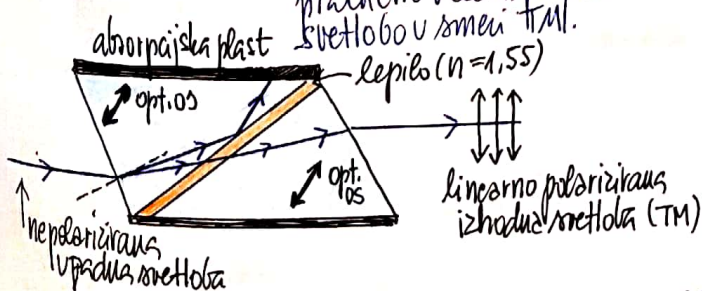 svetlobo v smeri TM.
absorpcijska plast
lepilo (n=1,55)
opt. os
opt.
os
linearno polarizirana
izhodna svetloba (TM)
nepolarizirana
vpadna svetloba